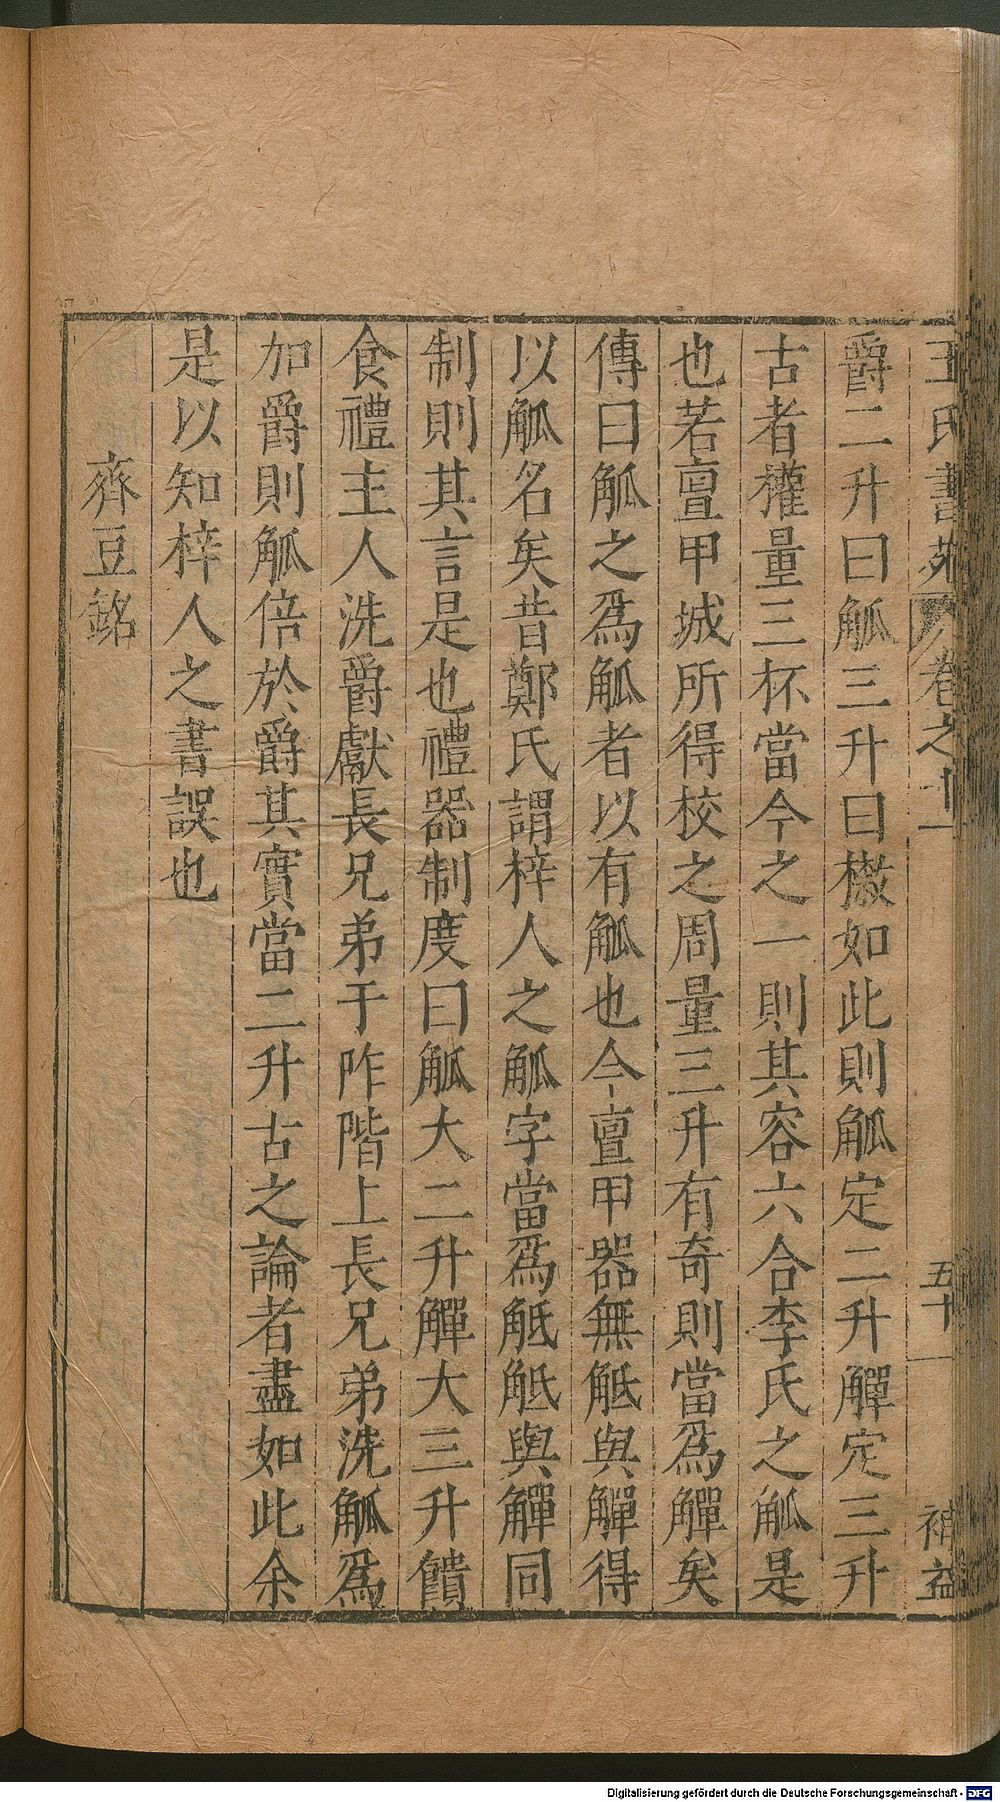 王氏書苑 卷之十一 五十一 補益
爵二升曰觚三升曰㯳如此則觚定二升觶定三升
古者權量三杯當今之一則其容六合李氏之觚是
也若亶甲城所得校之周量三升有奇則當爲觶矣
傳曰觚之爲觚者以有觚也今亶甲器無觝與觶得
以觚名矣昔鄭氏謂梓人之觚字當爲觝觝與觶同
制則其言是也禮器制度曰觚大二升觶大三升饋
食禮主人洗爵獻長兄弟于阼階上長兄弟洗觚爲
加爵則觚倍於爵其實當二升古之論者盡如此余
是以知梓人之書誤也
齊豆銘
Digitalisierung gefördert durch die Deutsche Forschungsgemeinschaft - DFG